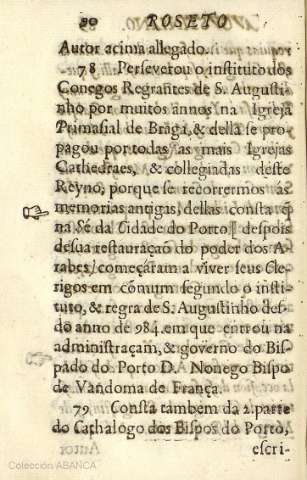 90 ROSETO
Autor acima allegado.
78 Perseverou o instituto dos
Conegos Regrantes de S. Augusti-
nho por muitos ãnnos na Igreja
Primasial de Braga, & della se pro-
pagou por todas as mais Igrejas
Cathedraes, & collegiadas deste
Reyno, porque se recorrermos ás
memorias antigas, dellas consta q̃
na Sé da Cidade do Porto, despois
de sua restauração do poder dos A-
rabes, começaram al viver seus Cle-
rigos em cõmum segundo o insti-
tuto, & regra de S. Augustinho des-
do anno de 984. em que entrou na
administraçam, & governo do Bis-
pado do Porto D. Nonego Bispo
de Vandoma de França.
79 Consta tambem da 2. parte
do Cathalogo dos Bispos do Porto,
escri-
Colección ABANCA